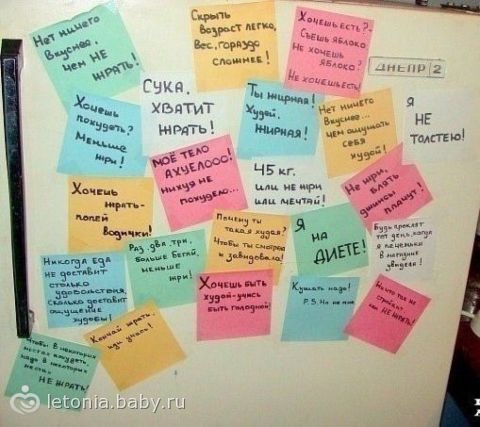 Нет ничего
вкуснее,
чем НЕ
ЖРАТЬ!
Скрыть
возраст легко,
Вес, гораздо
сложнее!
Хочешь есть?-
Съешь яблоко
Не хочешь
яблоко?
Не хочешь есть!
ДНЕПР 2
Хочешь
похудеть?
Меньше
жри!
СУКА,
ХВАТИТ
ЖРАТЬ!
Ты жирная!
Худей,
ЖИРНАЯ!
Нет ничего
вкуснее...
чем ощущать
себя
худой!
Я
НЕ
ТОЛСТЕЮ!
МОЁ ТЕЛО
АХУЕЛООО!
нихуя не
похудело...
45 кг.
или не жри
или мечтай!
Не жри,
БЛЯТЬ
джинсы
плачут!
Хочешь
жрать-
попей
водички!
Почему ты
такая худая?
Чтобы ты смотрела
и завидовала!
Я
НА
ДИЕТЕ!
Будь проклят
тот день, когда
я печеньки
в магазине
увидела!
Никогда еда
не доставит
столько
удовольствия,
сколько доставит
ощущение
худобы!
Раз, два, три,
больше бегай,
меньше
жри!
Хочешь быть
худой-учись
быть голодной!
Кушать надо!
P.S. Но не мне
Ничто так не
стройнит
как НЕ ЖРАТЬ!
Чтобы в некоторых
местах похудеть,
надо в некоторых
местах
НЕ ЖРАТЬ!
Кончай жрать,
иди учись!
letonia.baby.ru